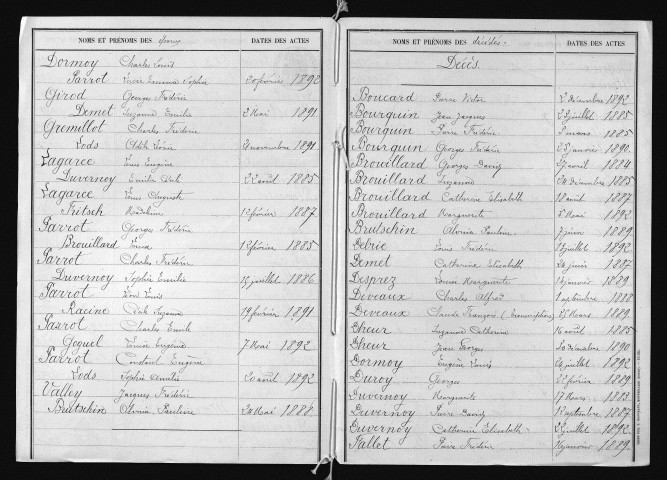 NOMS ET PRÉNOMS DES époux DATES DES ACTES
Dormoy Charles Louis
Parrot Louise Sophie 20 février 1892
Girod Georges Frédéric
Demet Suzanne Emilie 2 Mai 1891
Gremillot Charles Frédéric
Lods Adèle 21 novembre 1891
Lagarce Louis Eugène
Duvernoy Emilie Adèle 22 août 1885
Lagarce Louis Auguste
Fritsch Madeleine 12 février 1887
Parrot Georges Frédéric
Brouillard Emma 12 février 1885
Parrot Charles Frédéric
Duvernoy Sophie Emilie 15 juillet 1886
Parrot Léon Louis
Racine Adèle Suzanne 19 février 1891
Parrot Charles Emile
Goguel Louise Eugénie 7 Mai 1892
Parrot Constant Eugène
Lods Sophie Amélie 20 août 1892
Valley Jacques Frédéric
Brutschin Olivia Pauline 24 Mai 1888
NOMS ET PRÉNOMS DES décédés. DATES DES ACTES
Décès.
Boucard Pierre Victor 2 décembre 1892
Bourquin Jean Jacques 23 juillet 1885
Bourquin Pierre Frédéric 5 mars 1885
Bourquin Georges Frédéric 25 janvier 1890
Brouillard Georges David 27 avril 1884
Brouillard Suzanne 24 décembre 1885
Brouillard Catherine Elisabeth 18 août 1887
Brouillard Marguerite 5 Mai 1892
Brutschin Olivia Pauline 7 juin 1889
Debrie Louis Frédéric 18 juillet 1892
Demet Catherine Elisabeth 24 juin 1887
Desprez Louise Marguerite 18 janvier 1889
Deveaux Charles Alfred 1 septembre 1888
Deveaux Claude François (transcription) 25 Mars 1889
Dheur Suzanne Catherine 16 août 1885
Dheur Jean Georges 20 décembre 1890
Dormoy Eugène Louis 24 juillet 1892
Duroy Georges 22 février 1889
Duvernoy Marguerite 17 Mars 1883
Duvernoy Pierre David 12 septembre 1887
Duvernoy Catherine Elisabeth 28 juillet 1892
Fallot Pierre Frédéric 16 janvier 1889